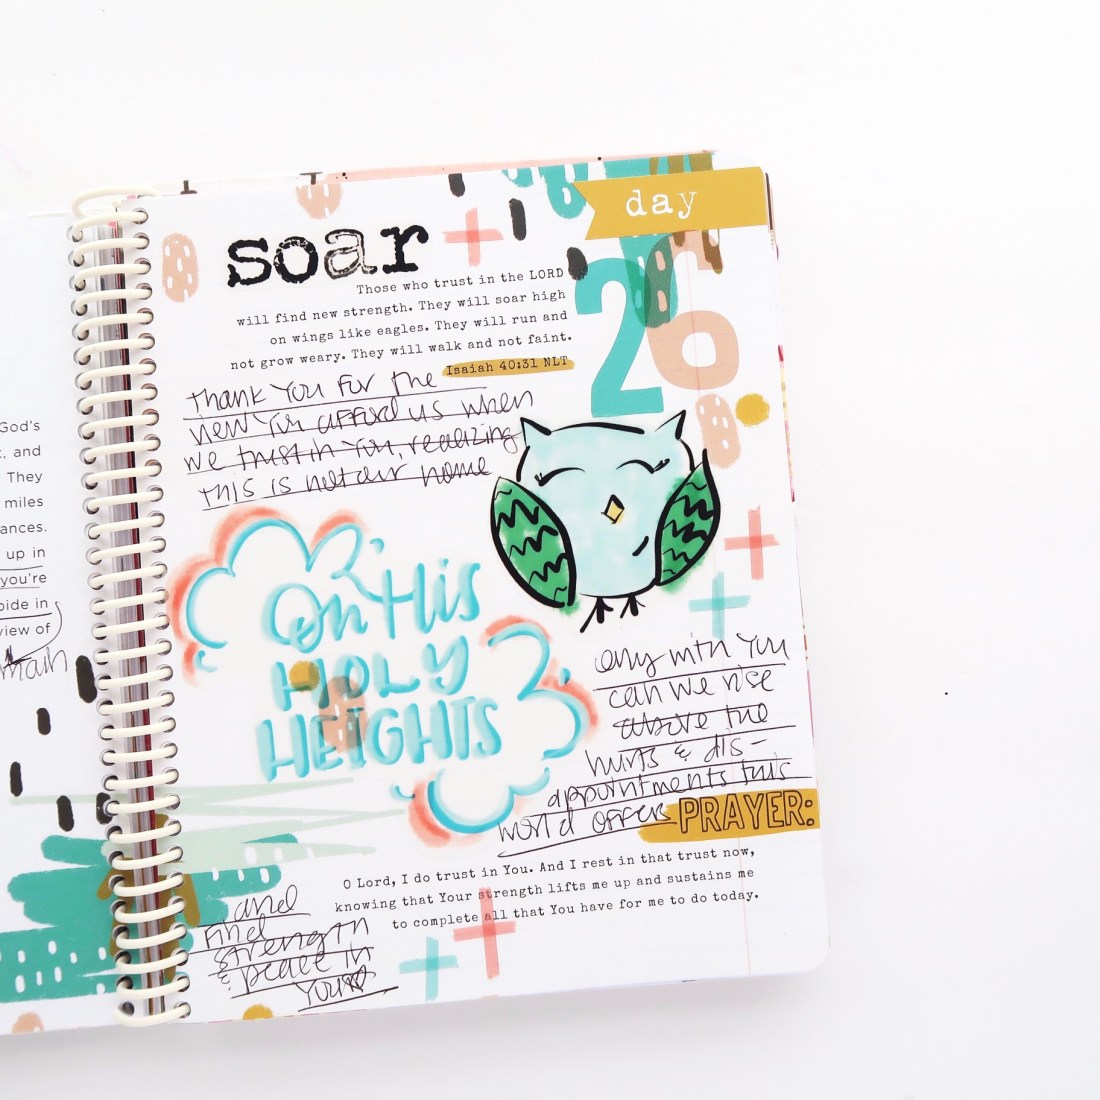 God's
, and
They
miles
ances.
up in
you're
bide in
view of
day
26
soar
Those who trust in the LORD
will find new strength. They will soar high
on wings like eagles. They will run and
not grow weary. They will walk and not faint.
Isaiah 40:31 NLT
Thank You for the
view You afford us when
we trust in You, realizing
this is not our home
On His
HOLY
HEIGHTS
Only with You
can we rise
above the
hurts & dis-
appointments this
world offers
PRAYER:
O Lord, I do trust in You. And I rest in that trust now,
knowing that Your strength lifts me up and sustains me
to complete all that You have for me to do today.
and
find
strength
& peace in